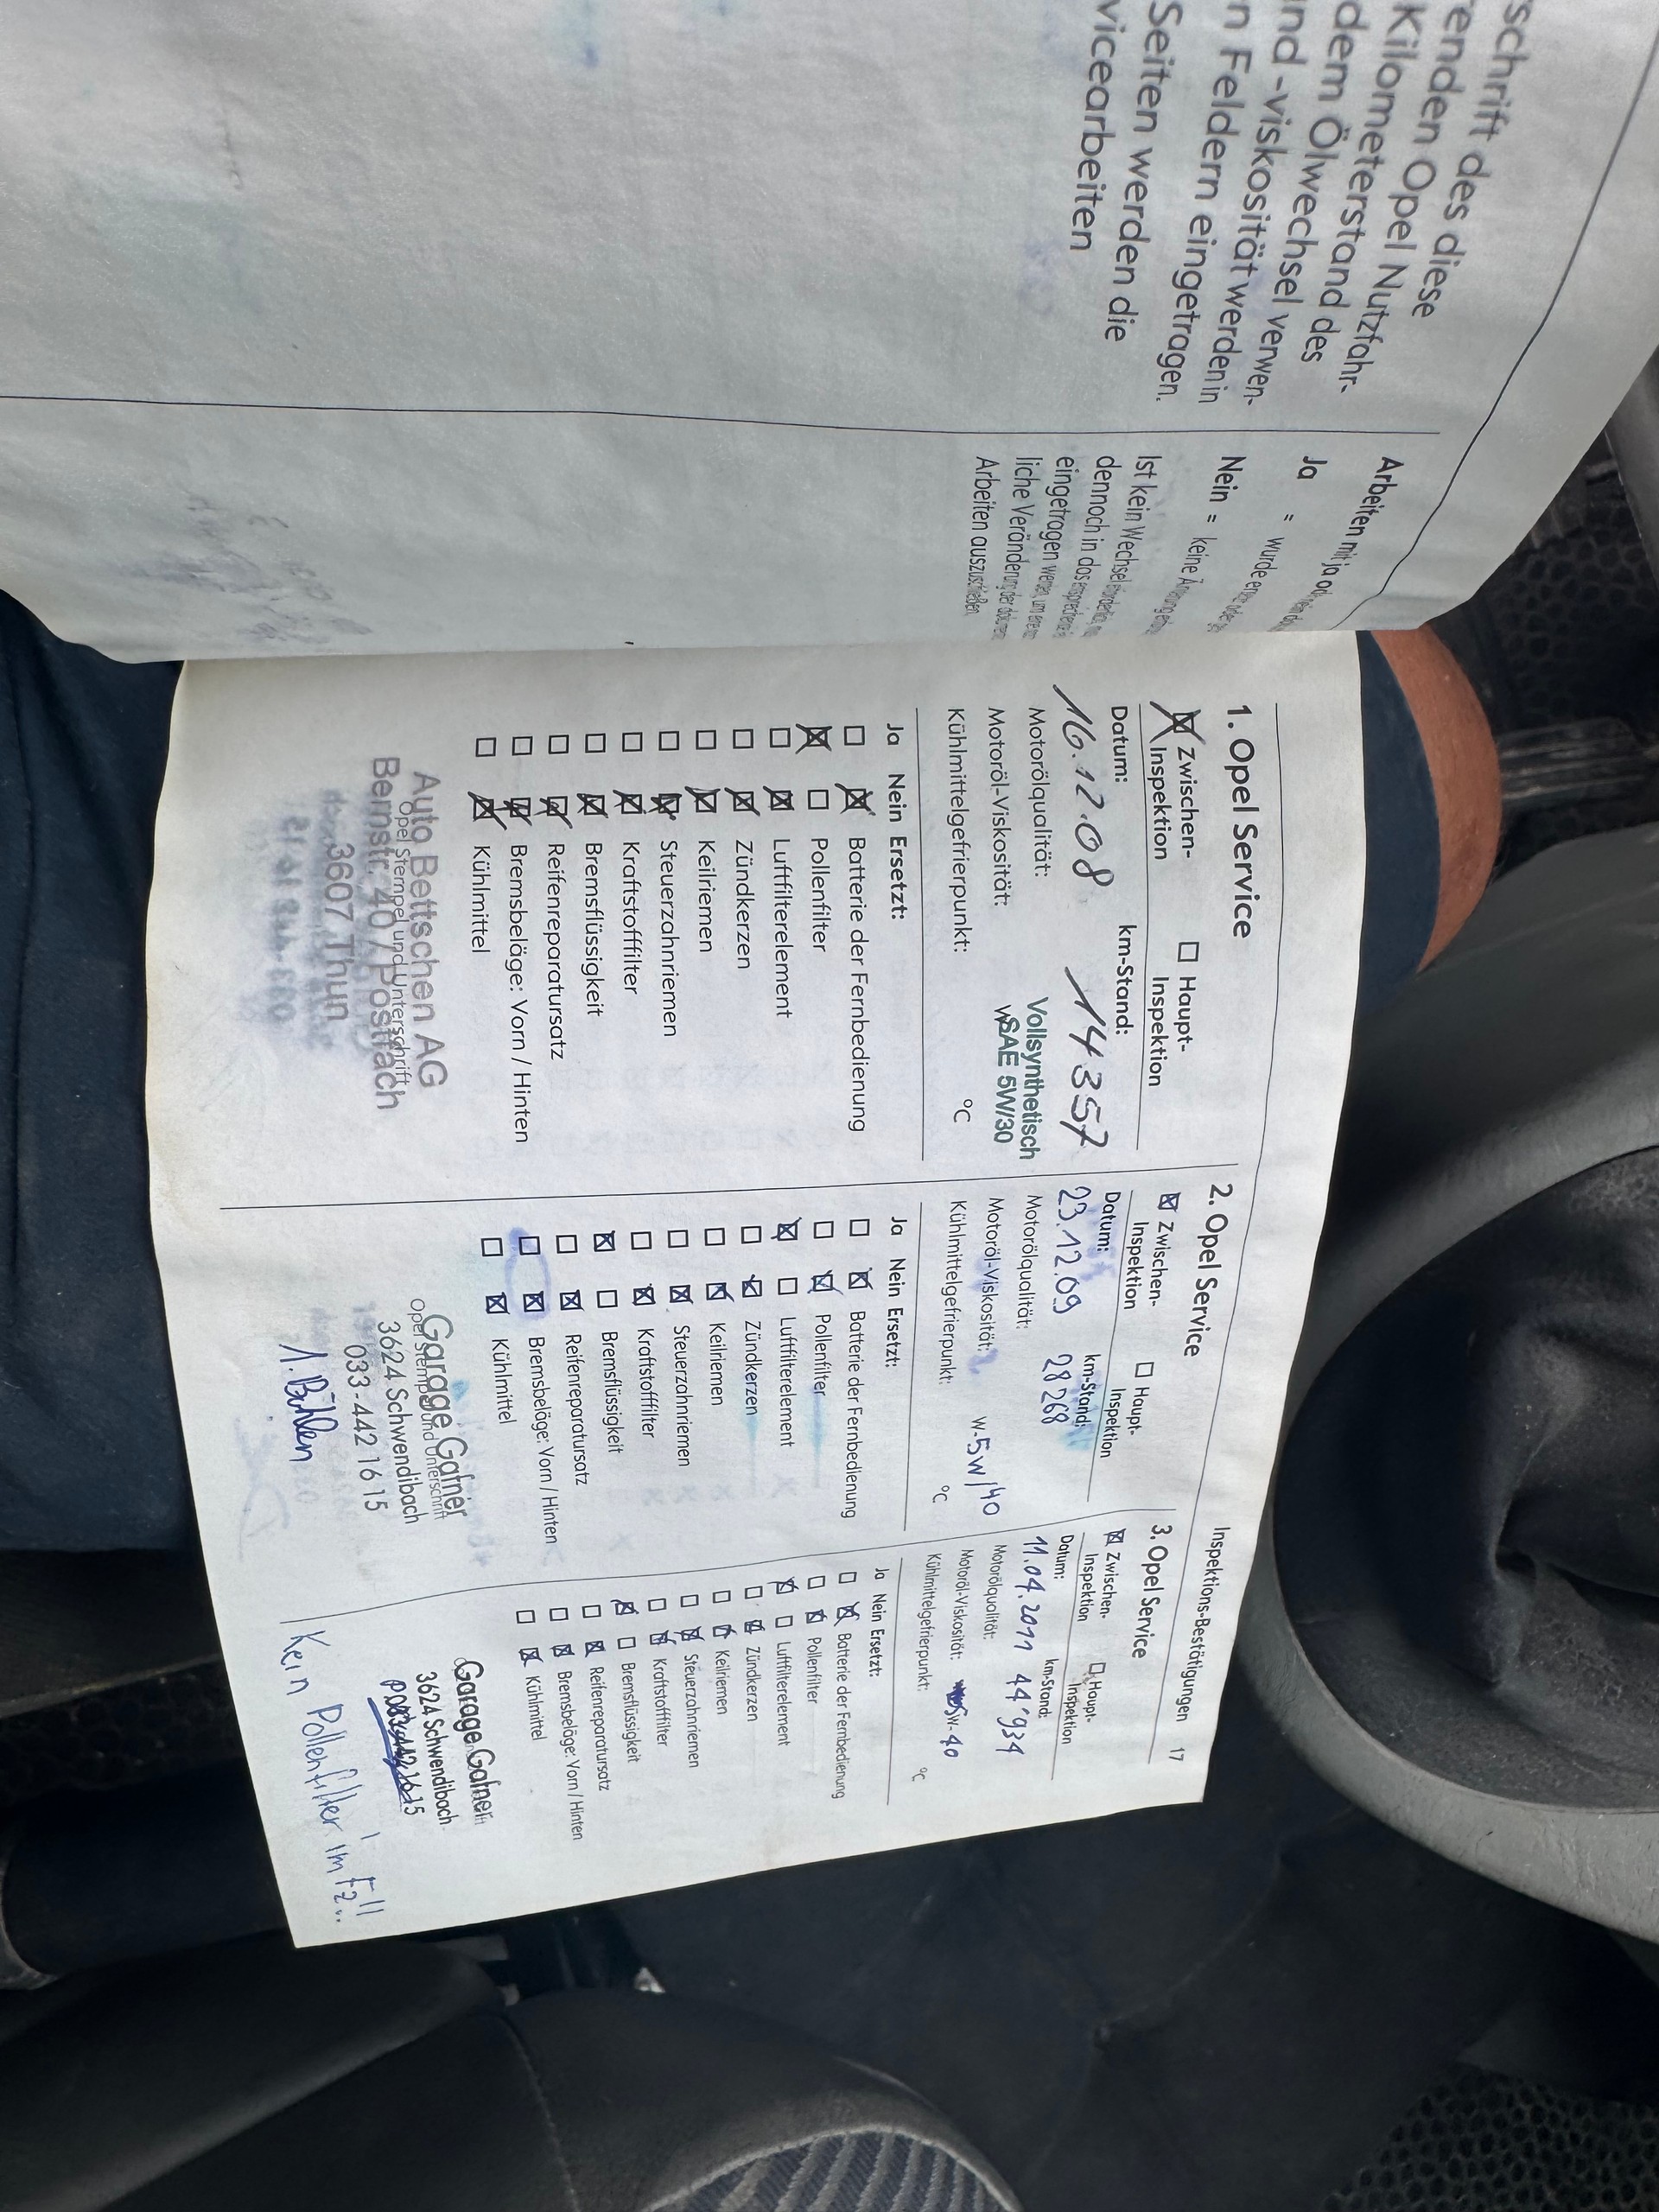 schrift des diese
enden Opel
Kilometerstand des
Nutzfahr-
dem Ölwechsel verwen-
nd -viskosität werden in
n Feldern eingetragen.
Seiten werden die
vicearbeiten
Arbeiten mit ja
Ja = wurde
Nein = keine
Ist kein Wechsel
dennoch in das
eingetragen werden, um eine
liche Veränderung der
Arbeiten auszuschließen.
Inspektions-Bestätigungen 17
1. Opel Service
Zwischen-
Inspektion
Haupt-
Inspektion
Datum: km-Stand:
16.12.08 14357
Motorölqualität: Vollsynthetisch
Motoröl-Viskosität: W SAE 5W/30
Kühlmittelgefrierpunkt: °C
Ja Nein Ersetzt:
Batterie der Fernbedienung
Pollenfilter
Luftfilterelement
Zündkerzen
Keilriemen
Steuerzahnriemen
Kraftstofffilter
Bremsflüssigkeit
Reifenreparatursatz
Bremsbeläge: Vorn / Hinten
Kühlmittel
Auto Bettschen AG
Opel Stempel und Unterschrift
Bernstr. 40 / Postfach
3607 Thun
2. Opel Service
Zwischen-
Inspektion
Haupt-
Inspektion
Datum: km-Stand:
23.12.09 28268
Motorölqualität:
Motoröl-Viskosität: W-5W/40
Kühlmittelgefrierpunkt: °C
Ja Nein Ersetzt:
Batterie der Fernbedienung
Pollenfilter
Luftfilterelement
Zündkerzen
Keilriemen
Steuerzahnriemen
Kraftstofffilter
Bremsflüssigkeit
Reifenreparatursatz
Bremsbeläge: Vorn / Hinten
Kühlmittel
Garage Gafner
Opel Stempel und Unterschrift
3624 Schwendibach
033-442 16 15
3. Opel Service
Zwischen-
Inspektion
Haupt-
Inspektion
Datum: km-Stand:
11.04.2011 44'934
Motorölqualität:
Motoröl-Viskosität: 5W-40
Kühlmittelgefrierpunkt: °C
Ja Nein Ersetzt:
Batterie der Fernbedienung
Pollenfilter
Luftfilterelement
Zündkerzen
Keilriemen
Steuerzahnriemen
Kraftstofffilter
Bremsflüssigkeit
Reifenreparatursatz
Bremsbeläge: Vorn / Hinten
Kühlmittel
Garage Gafner
3624 Schwendibach
Kein Pollenfilter im Fz..